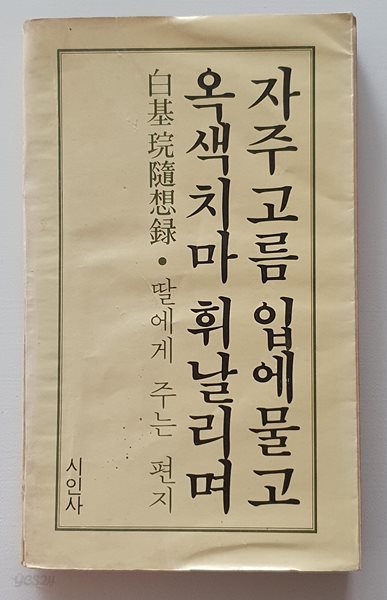 자주 고름 입에 물고
옥색치마 휘날리며
白基琓隨想録 • 딸에게 주는 편지
시인사
yes24